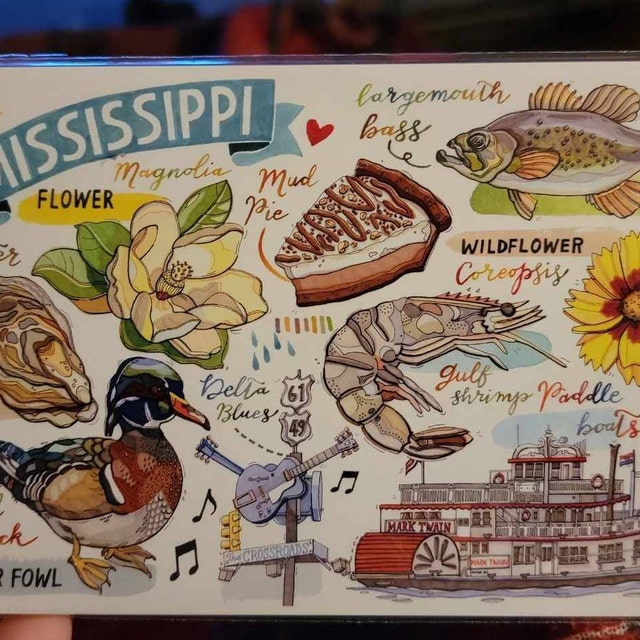 MISSISSIPPI
largemouth
bass
Magnolia
FLOWER
Mud
Pie
WILDFLOWER
Coreopsis
Delta
Blues
61
49
gulf
shrimp
Paddle
boats
The CROSSROADS
MARK TWAIN
MARK TWAIN
FOWL